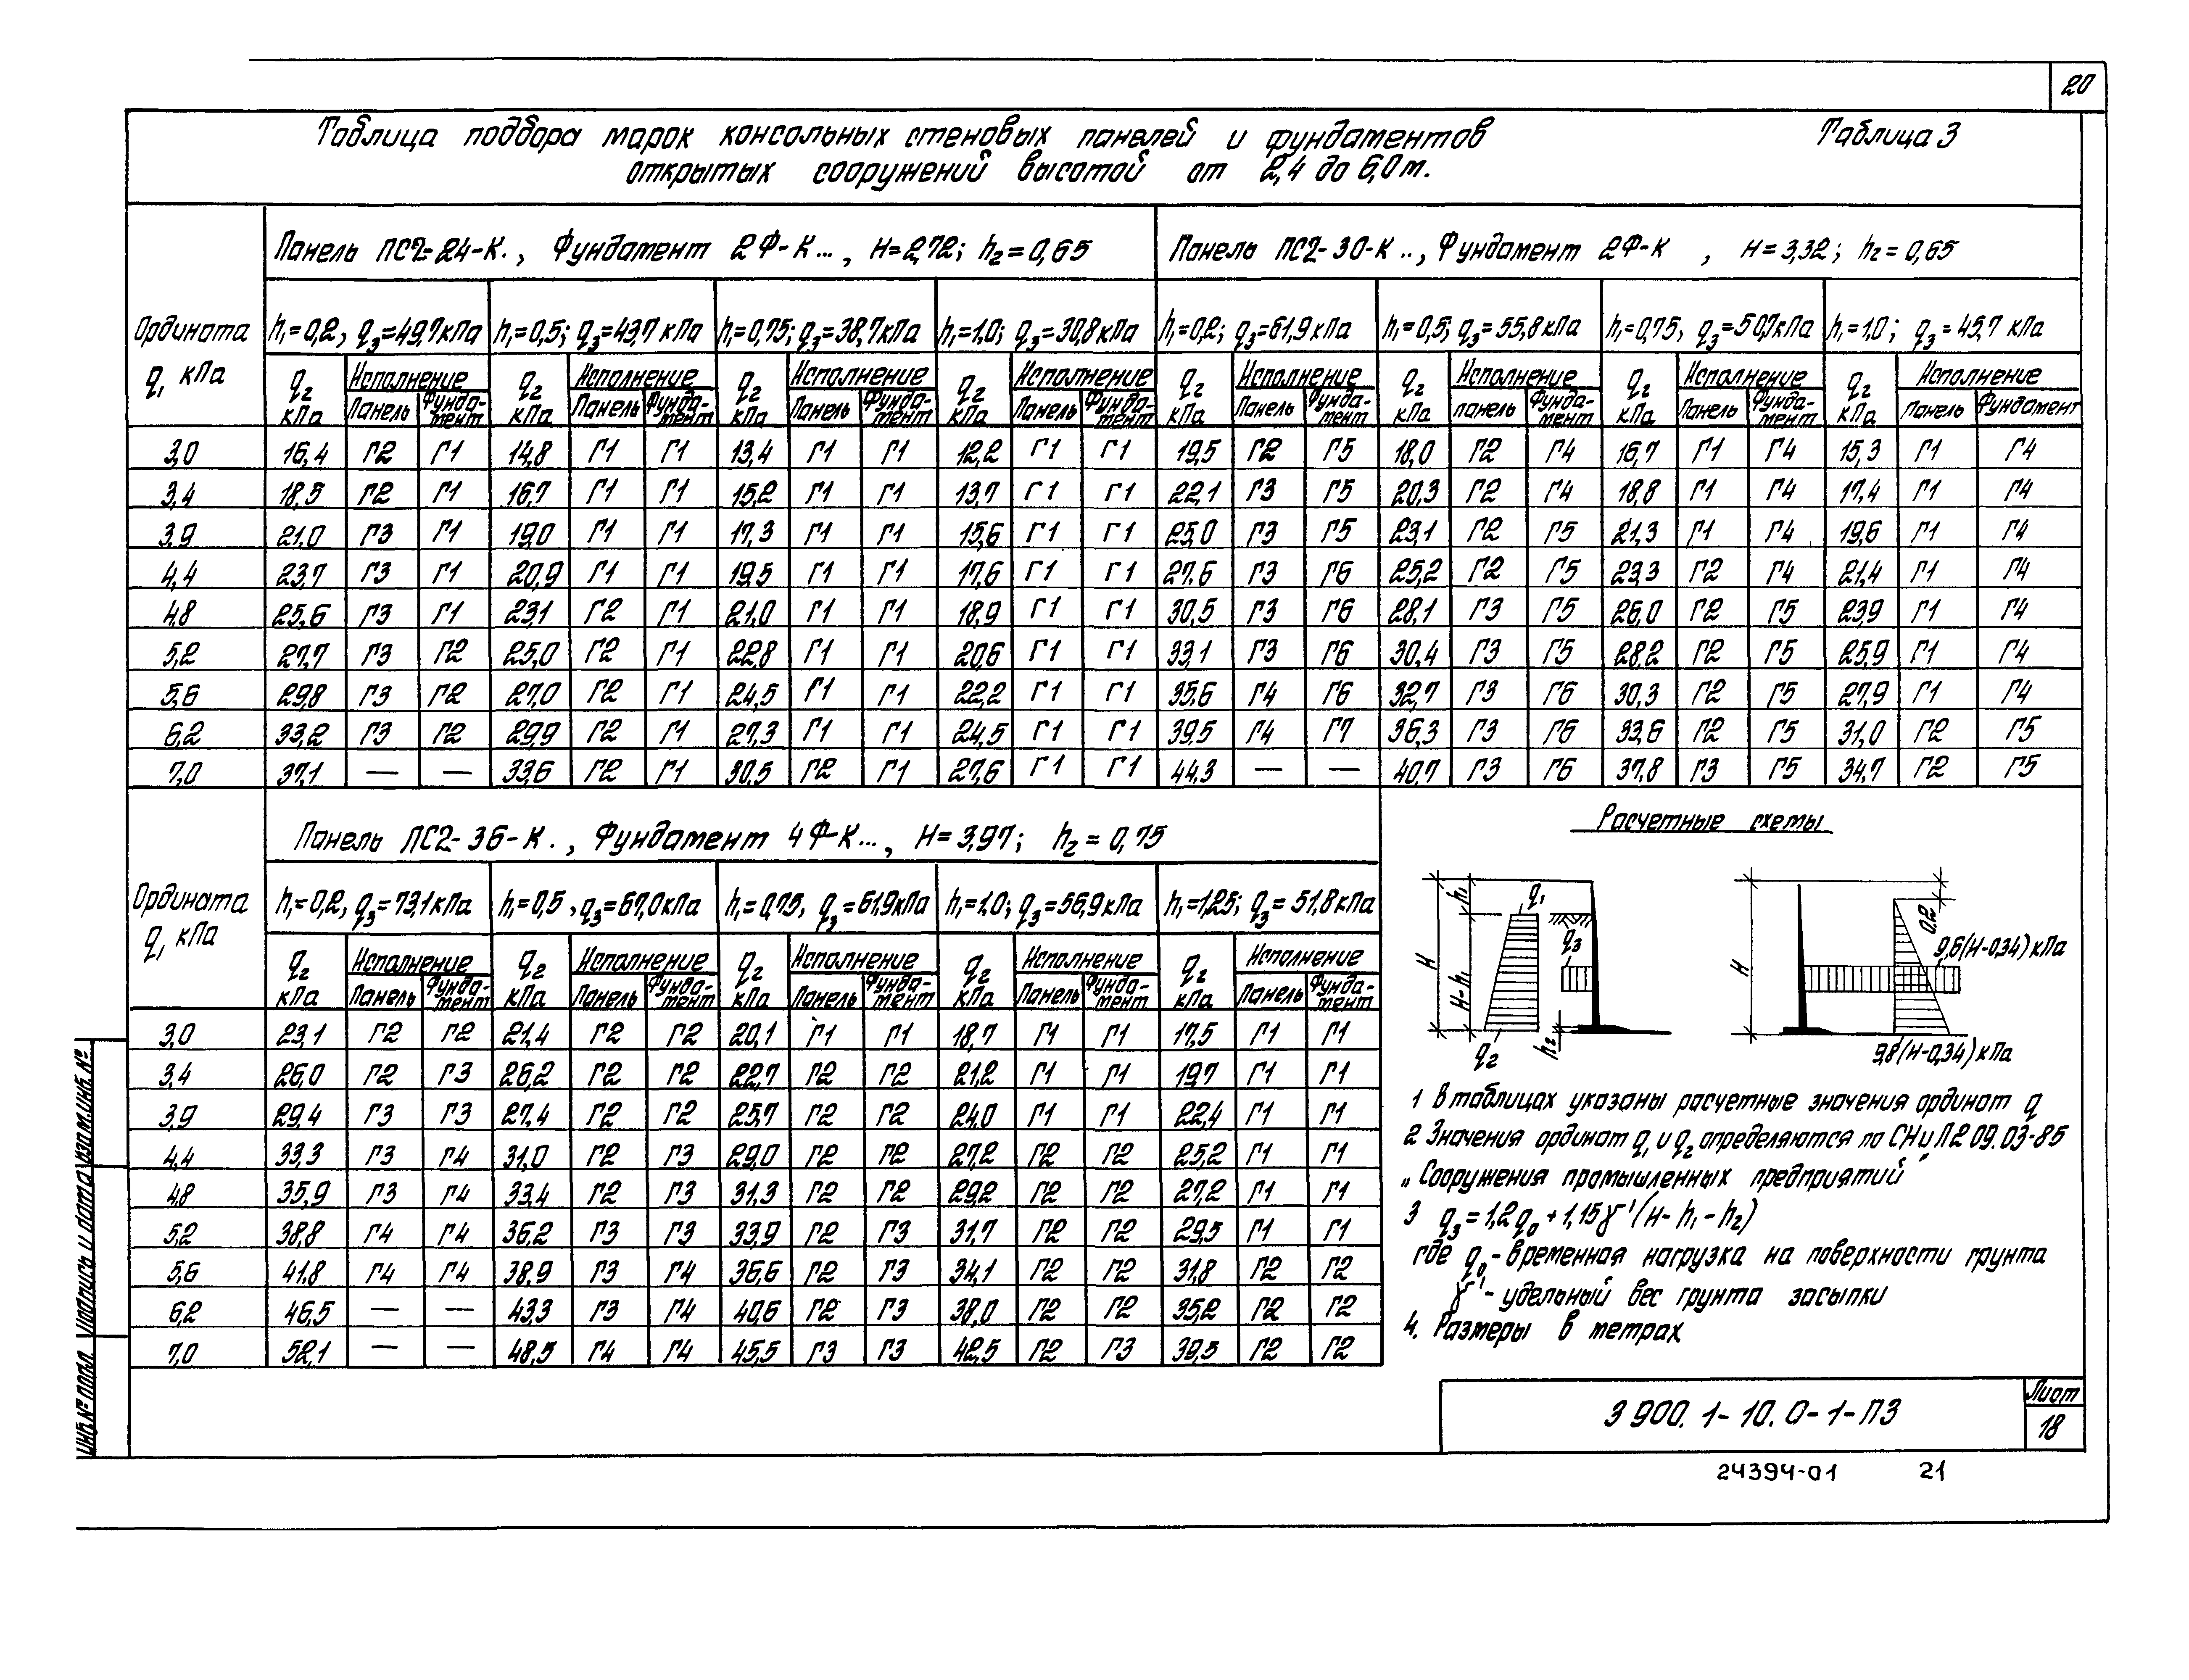 20
Таблица подбора марок консольных стеновых панелей и фундаментов
Таблица 3
открытых сооружений высотой от 2,4 до 6,0 м.
Ордината q₁ кПа
Панель ПС2-24-К., Фундамент 2Ф-К..., H=2,72; h₂=0,65
Панель ПС2-30-К.., Фундамент 2Ф-К , H=3,32; h₂=0,65
h₁=0,2, q₃=49,7кПа h₁=0,5; q₃=43,7 кПа h₁=0,75; q₃=38,7кПа h₁=1,0; q₃=30,8кПа h₁=0,2; q₃=61,9кПа h₁=0,5; q₃=55,8кПа h₁=0,75, q₃=50,7кПа h₁=1,0; q₃=45,7 кПа
q₂ кПа Исполнение q₂ кПа Исполнение q₂ кПа Исполнение q₂ кПа Исполнение q₂ кПа Исполнение q₂ кПа Исполнение q₂ кПа Исполнение q₂ кПа Исполнение
Панель Фунда-мент Панель Фунда-мент Панель Фунда-мент Панель Фунда-мент Панель Фунда-мент панель Фунда-мент Панель Фунда-мент Панель Фундамент
3,0 16,4 Г2 Г1 14,8 Г1 Г1 13,4 Г1 Г1 12,2 Г1 Г1 19,5 Г2 Г5 18,0 Г2 Г4 16,7 Г1 Г4 15,3 Г1 Г4
3,4 18,5 Г2 Г1 16,7 Г1 Г1 15,2 Г1 Г1 13,7 Г1 Г1 22,1 Г3 Г5 20,3 Г2 Г4 18,8 Г1 Г4 17,4 Г1 Г4
3,9 21,0 Г3 Г1 19,0 Г1 Г1 17,3 Г1 Г1 15,6 Г1 Г1 25,0 Г3 Г5 23,1 Г2 Г5 21,3 Г1 Г4 19,6 Г1 Г4
4,4 23,7 Г3 Г1 20,9 Г1 Г1 19,5 Г1 Г1 17,6 Г1 Г1 27,6 Г3 Г6 25,2 Г2 Г5 23,3 Г2 Г4 21,4 Г1 Г4
4,8 25,6 Г3 Г1 23,1 Г2 Г1 21,0 Г1 Г1 18,9 Г1 Г1 30,5 Г3 Г6 28,1 Г3 Г5 26,0 Г2 Г5 23,9 Г1 Г4
5,2 27,7 Г3 Г2 25,0 Г2 Г1 22,8 Г1 Г1 20,6 Г1 Г1 33,1 Г3 Г6 30,4 Г3 Г5 28,2 Г2 Г5 25,9 Г1 Г4
5,6 29,8 Г3 Г2 27,0 Г2 Г1 24,5 Г1 Г1 22,2 Г1 Г1 35,6 Г4 Г6 32,7 Г3 Г6 30,3 Г2 Г5 27,9 Г1 Г4
6,2 33,2 Г3 Г2 29,9 Г2 Г1 27,3 Г1 Г1 24,5 Г1 Г1 39,5 Г4 Г7 36,3 Г3 Г6 33,6 Г2 Г5 31,0 Г2 Г5
7,0 37,1 — — 33,6 Г2 Г1 30,5 Г2 Г1 27,6 Г1 Г1 44,3 — — 40,7 Г3 Г6 37,8 Г3 Г5 34,7 Г2 Г5
Ордината q₁ кПа
Панель ПС2-36-К., Фундамент 4Ф-К..., H=3,97; h₂=0,75
h₁=0,2, q₃=73,1кПа h₁=0,5, q₃=67,0кПа h₁=0,75, q₃=61,9кПа h₁=1,0; q₃=56,9кПа h₁=1,25; q₃=51,8кПа
q₂ кПа Исполнение q₂ кПа Исполнение q₂ кПа Исполнение q₂ кПа Исполнение q₂ кПа Исполнение
Панель Фунда-мент Панель Фунда-мент Панель Фунда-мент Панель Фунда-мент Панель Фунда-мент
3,0 23,1 Г2 Г2 21,4 Г2 Г2 20,1 Г1 Г1 18,7 Г1 Г1 17,5 Г1 Г1
3,4 26,0 Г2 Г3 26,2 Г2 Г2 22,7 Г2 Г2 21,2 Г1 Г1 19,7 Г1 Г1
3,9 29,4 Г3 Г3 27,4 Г2 Г2 25,7 Г2 Г2 24,0 Г1 Г1 22,4 Г1 Г1
4,4 33,3 Г3 Г4 31,0 Г2 Г3 29,0 Г2 Г2 27,2 Г2 Г2 25,2 Г1 Г1
4,8 35,9 Г3 Г4 33,4 Г2 Г3 31,3 Г2 Г2 29,2 Г2 Г2 27,2 Г1 Г1
5,2 38,8 Г4 Г4 36,2 Г3 Г3 33,9 Г2 Г3 31,7 Г2 Г2 29,5 Г1 Г1
5,6 41,8 Г4 Г4 38,9 Г3 Г4 36,6 Г2 Г3 34,1 Г2 Г2 31,8 Г2 Г2
6,2 46,5 — — 43,3 Г3 Г4 40,6 Г2 Г3 38,0 Г2 Г2 35,2 Г2 Г2
7,0 52,1 — — 48,5 Г4 Г4 45,5 Г3 Г3 42,5 Г2 Г3 39,5 Г2 Г2
Расчетные схемы
H h₁ H-h₁ q₁ q₃ q₂ h₂
H 0,2 9,6(H-0,34) кПа
9,8(H-0,34) кПа
1 В таблицах указаны расчетные значения ординат q
2 Значения ординат q₁ и q₂ определяются по СНиП 2 09.03-85
„Сооружения промышленных предприятий"
3 q₃=1,2q₀+1,15γ'(H-h₁-h₂)
где q₀ - временная нагрузка на поверхности грунта
γ' - удельный вес грунта засыпки
4. Размеры в метрах
3 900. 1-10. 0-1-ПЗ
Лист
18
24394-01 21
Инв.№ подл.
Подпись и дата
Взам.инв.№